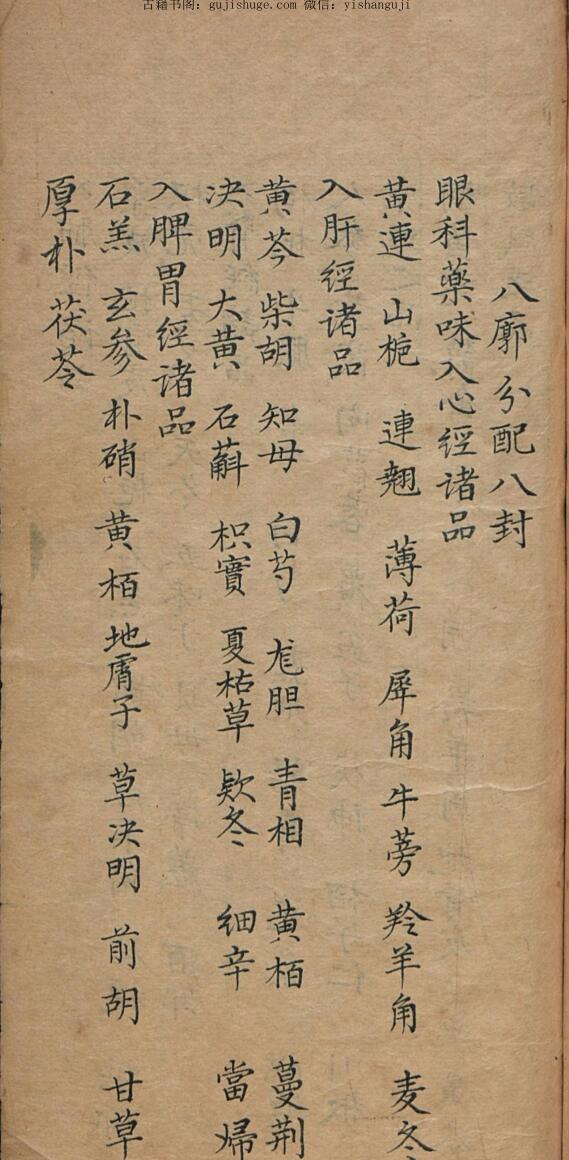 古籍书阁：gujishuge.com 微信：yishanguji
八廓分配八封
眼科藥味入心經诸品
黄連 山栀 連翹 薄荷 犀角 牛蒡 羚羊角 麦冬
入肝經诸品
黄芩 柴胡 知母 白芍 尨胆 青相 黄栢 蔓荆
决明 大黄 石斛 枳實 夏枯草 欵冬 细辛 當婦
入脾胃經诸品
石羔 玄参 朴硝 黄栢 地膚子 草决明 前胡 甘草
厚朴 茯苓